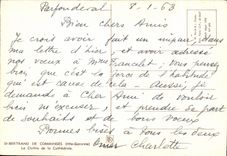 Parfonderal 8-1-63
Bien chers Amis
Je crois avoir fait un impair dans
ma lettre d'hier, et avoir adressé
nos vœux à Mme Franchet; vous pensez
bien, que c'est la force de l'habitude
qui est cause de cela. Aussi, je
demande à Cher Ami de vouloir
bien m'excuser, et prendre sa part
de souhaits et de bons vœux
Bonnes bises à tous les deux
Charlotte
ST BERTRAND DE COMMINGES (Hte-Garonne)
Le Cloître de la Cathédrale